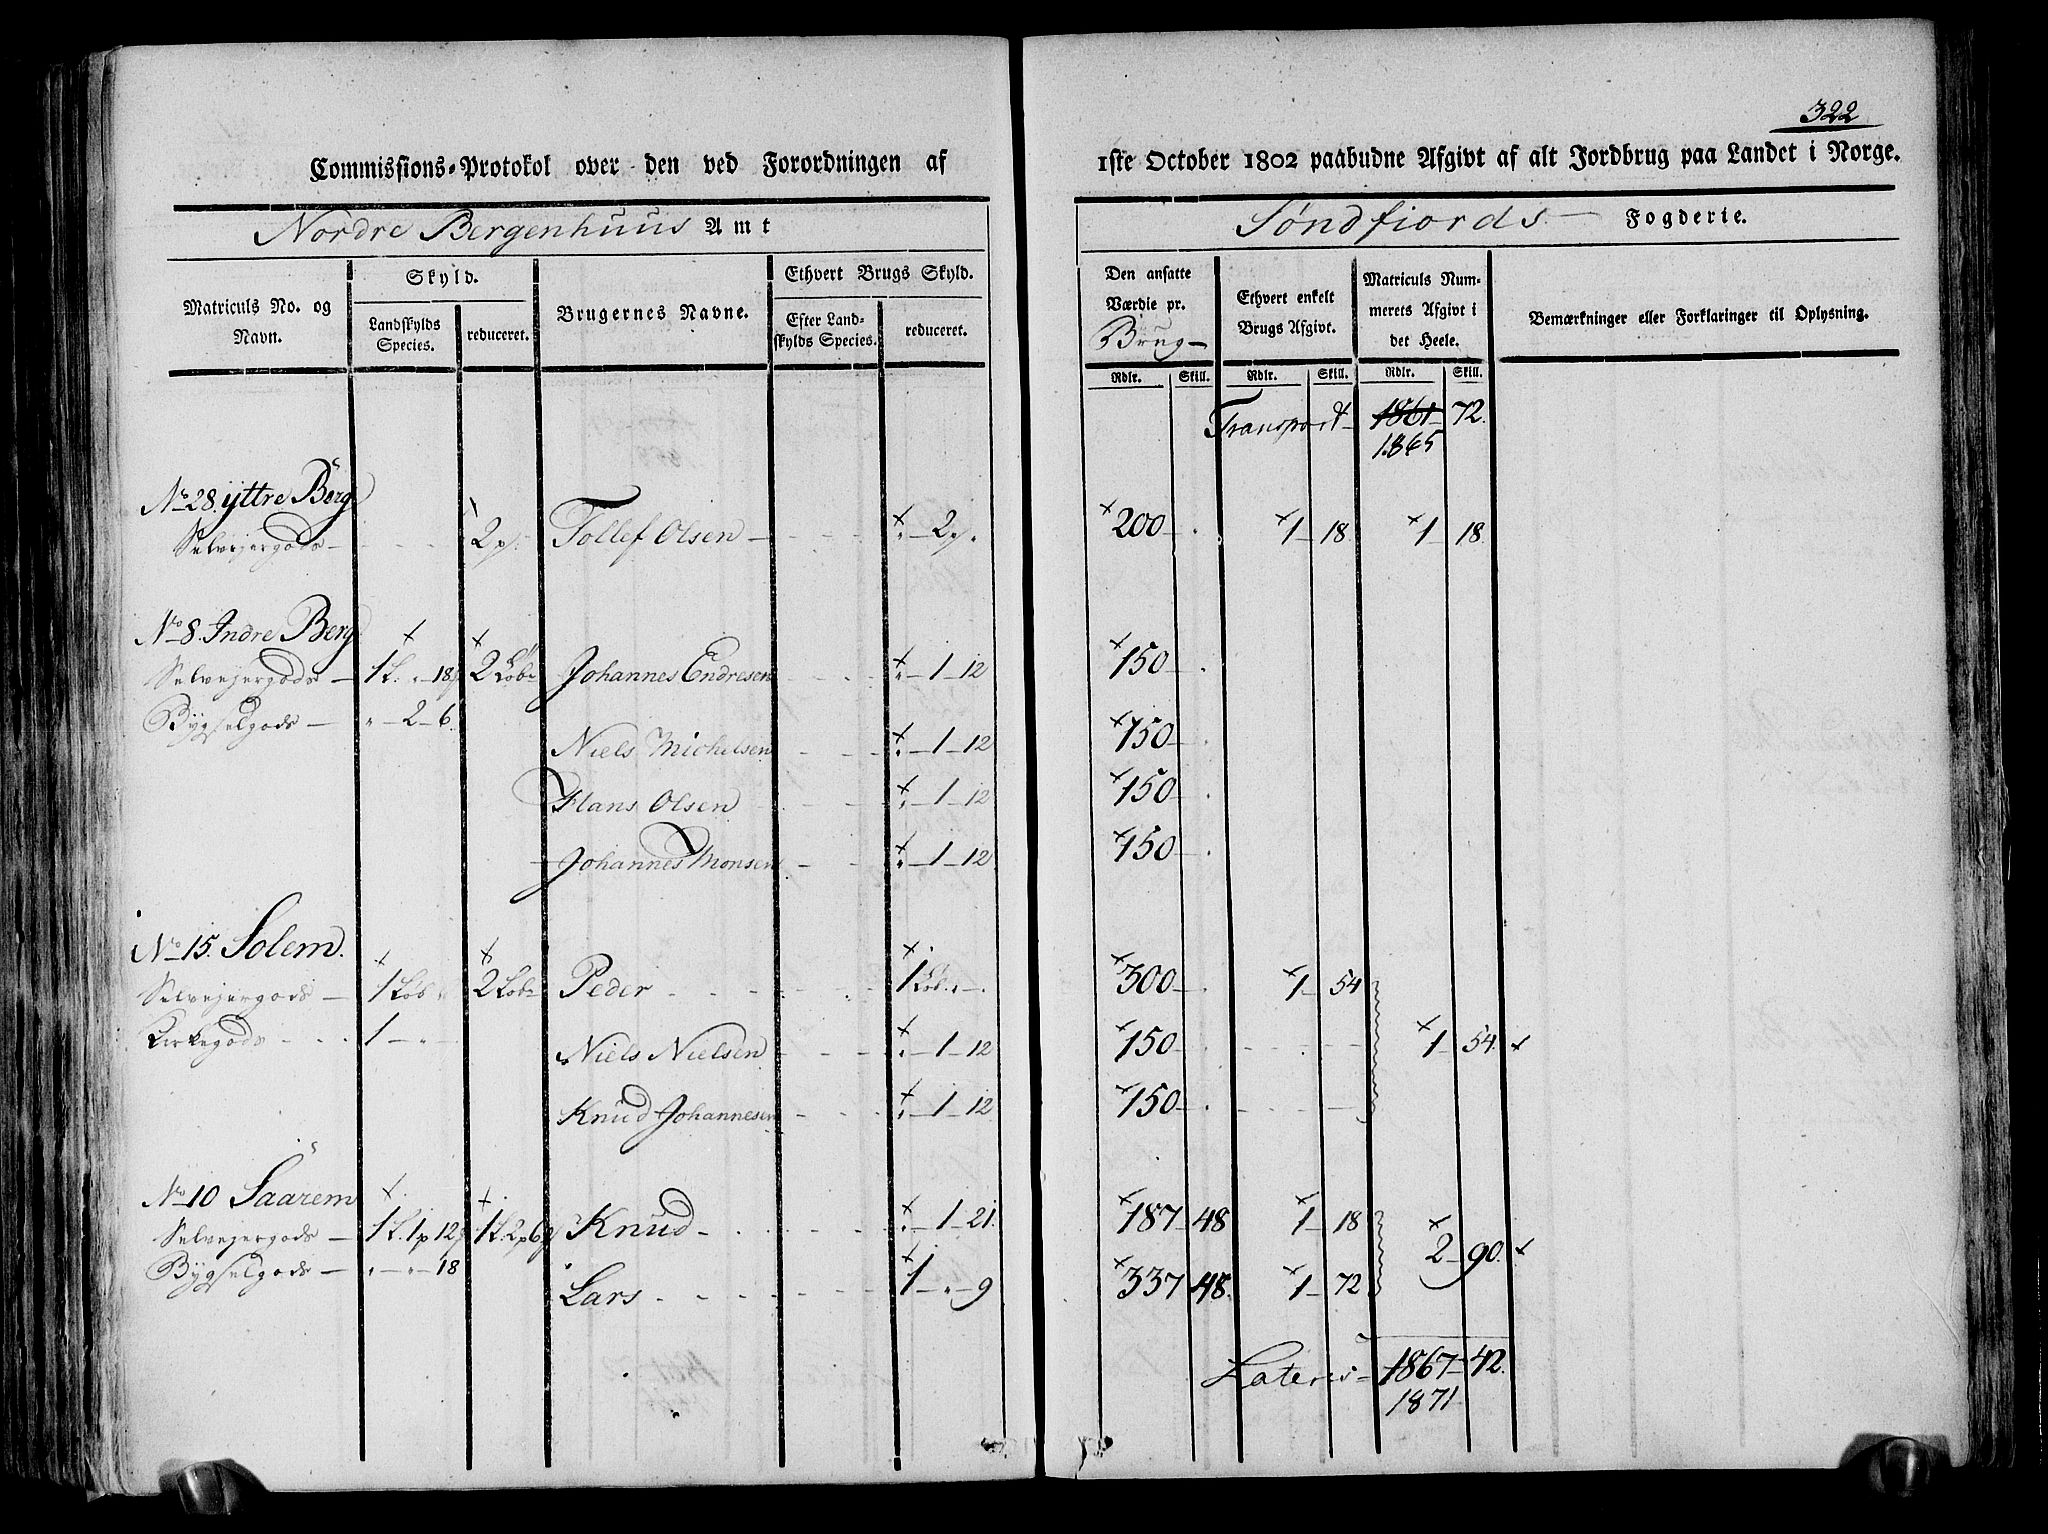 322
Commissions-Protokol over den ved Forordningen af 1ste October 1802 paabudne Afgivt af alt Jordbrug paa Landet i Norge.
Nordre Bergenhuus Amt Søndfiords Fogderie.
Matriculs No. og Navn. Skyld. Landskylds Species. reduceret. Brugernes Navne. Ethvert Brugs Skyld. Efter Landskylds Species. reduceret. Den ansatte Værdie pr. Brug Ethvert enkelt Brugs Afgivt. Matriculs Nummerets Afgivt i det Heele. Bemærkninger eller Forklaringer til Oplysning.
Rdlr. Skill. Rdlr. Skill. Rdlr. Skill.
Transport 1861 72.
1865
No 28. yttre Berg
Selvejergods 2 p. Tollef Olsen 2 p. 200 1 18 1 18.
No 8. Indre Berg
Selvejergods 1 L. " 18 2 Løbe Johannes Endresen " 1 12 150
Bygselgods " 2 6
Niels Michelsen " 1 12 150
Hans Olsen " 1 12 150
Johannes Monsen " 1 12 150
No 15. Solem.
Selvejergods 1 Løb " 2 Løbe Peder 1 Løb. " 300 1 54
Kirkegods 1 " Niels Nielsen " 1 12 150 1 54.
Knud Johannesen " 1 12 150
No 10 Saarem
Selvejergods 1 L. 1 p 12 1 L. 2 p 6 Knud " 1 21. 187 48 1 18
Bygselgods " " 18 2 90.
Lars 1 " 9 337 48. 1 72
Lateris 1867 42.
1871